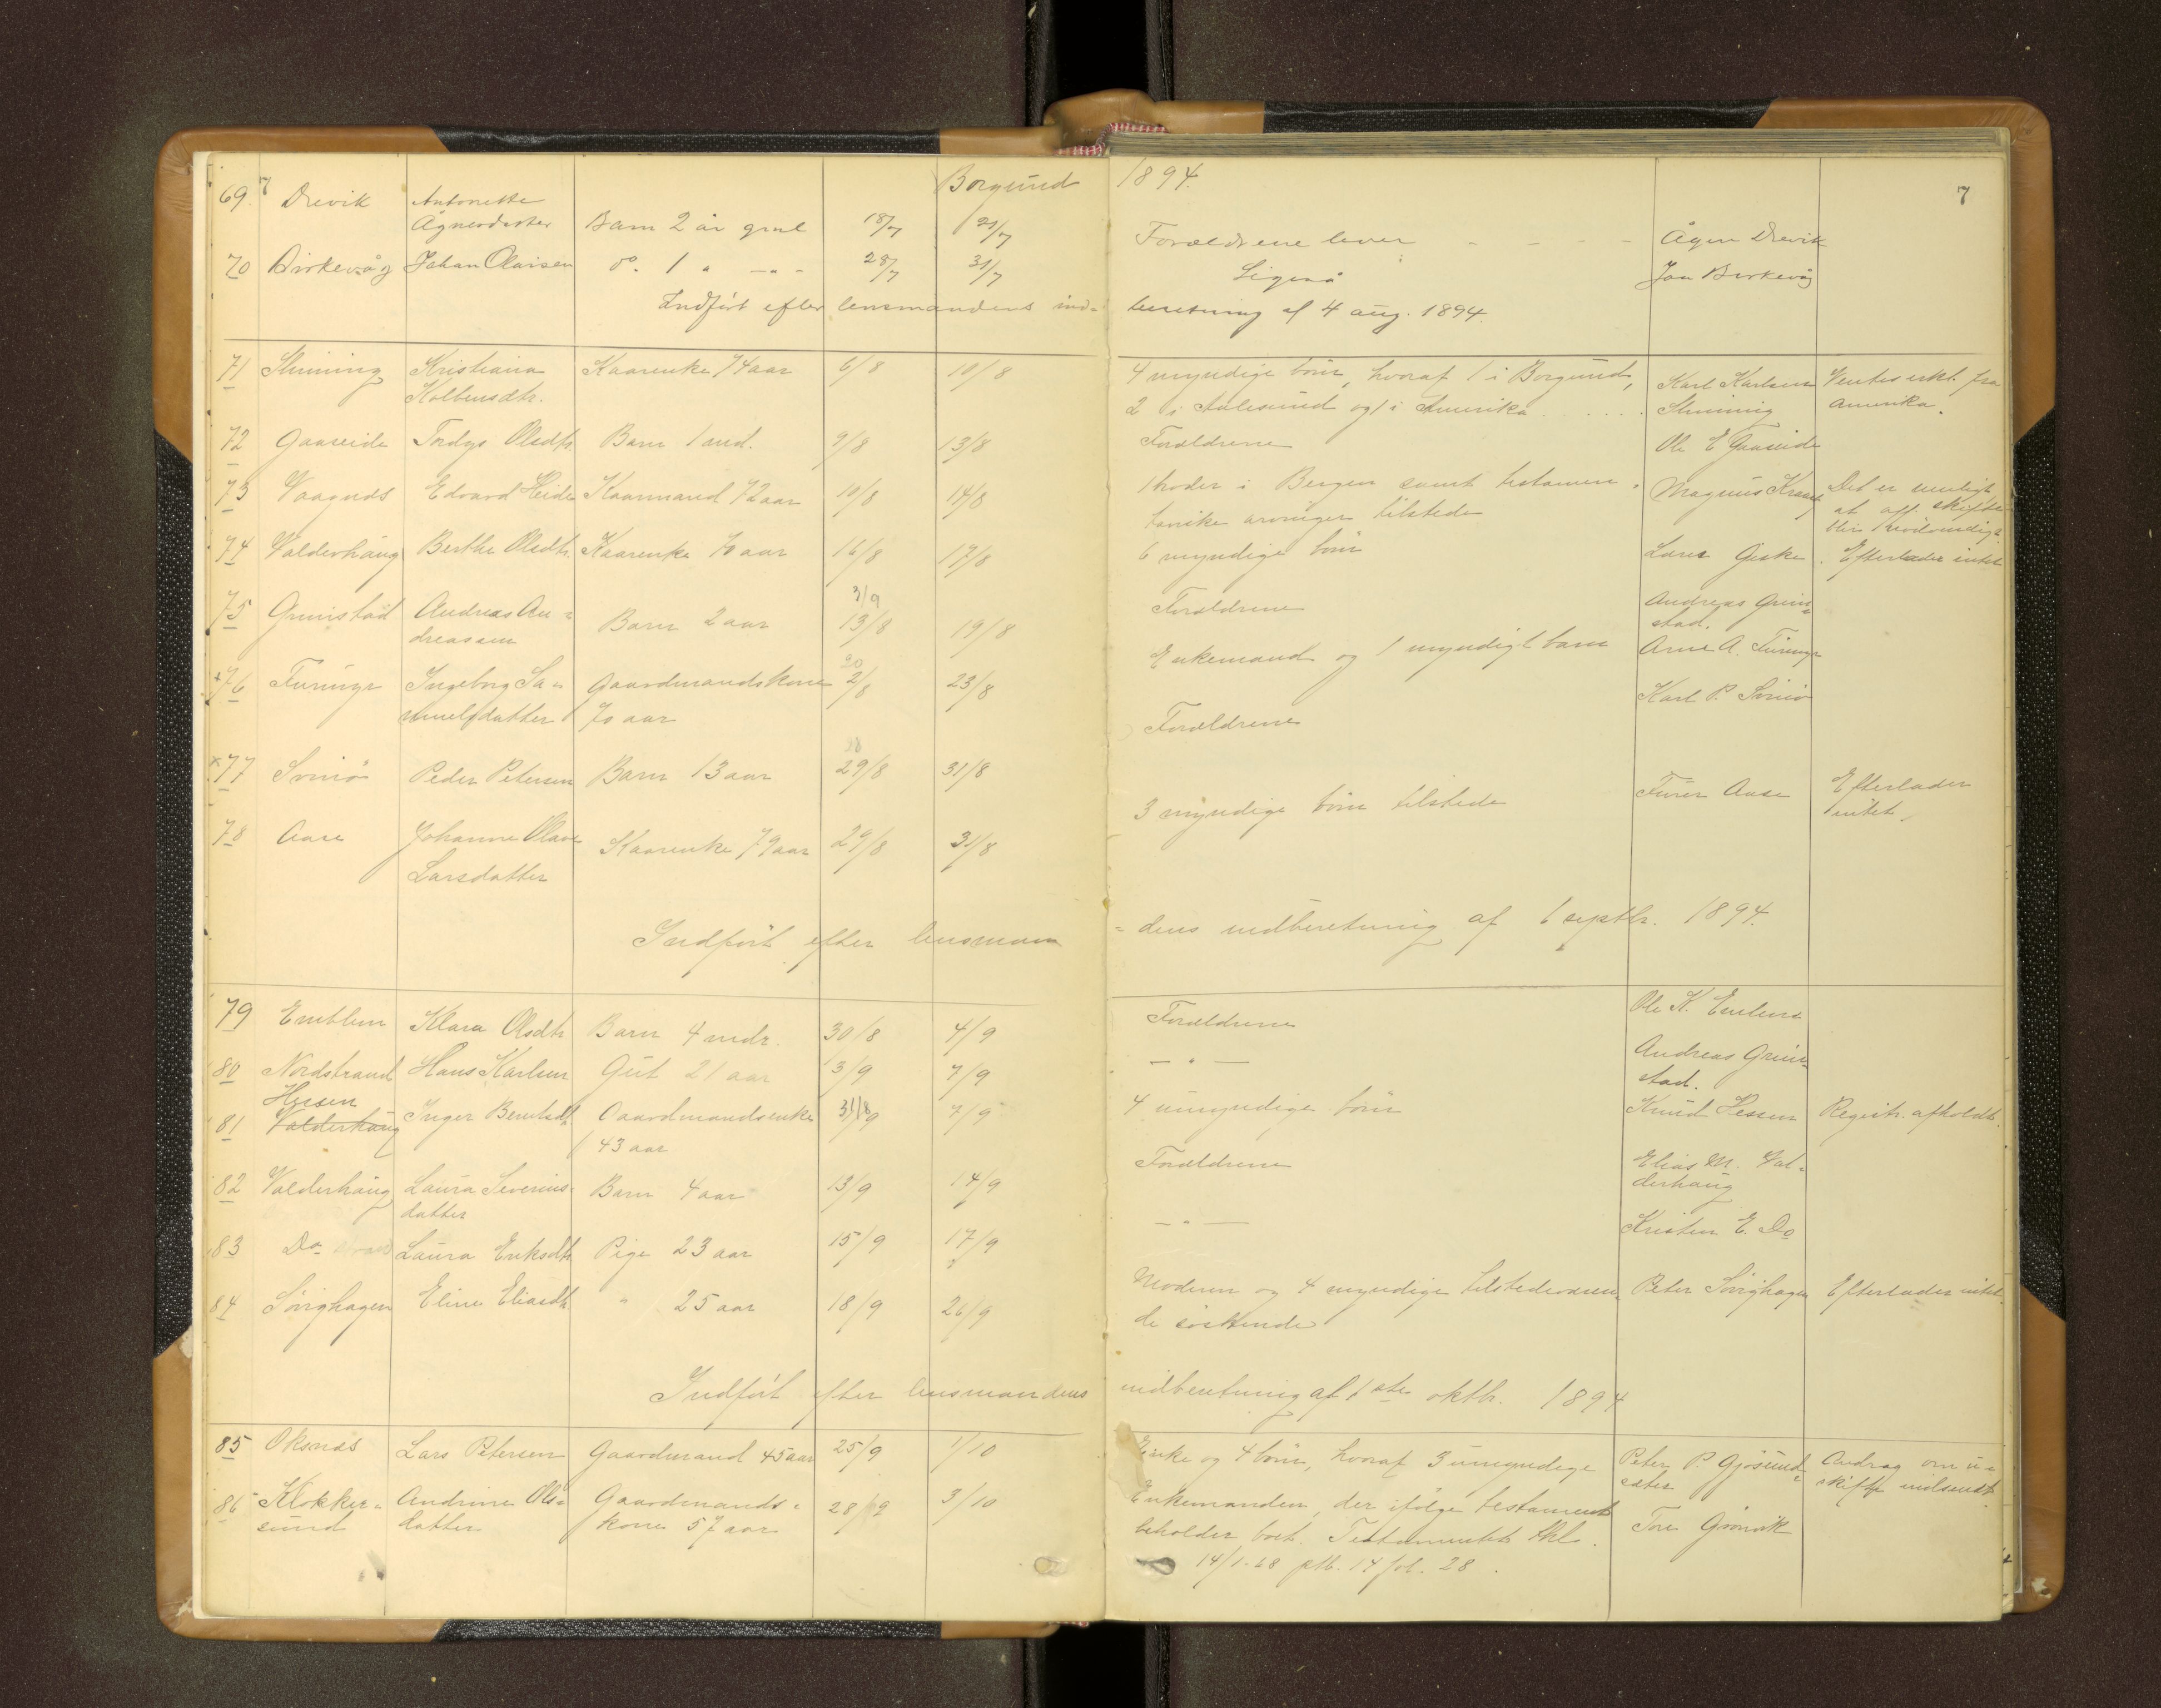 Borgund 1894.
7
69. Drevik Antonette
Ågnesdatter Barn 2 år gml 18/7 21/7 Forældrene lever Ågen Drevik
70 Birkevåg Johan Olaisen do. 1 " — " - 28/7 31/7 Ligeså Jon Birkevåg
Indført efter lensmandens ind= beretning af 4 aug. 1894.
71 Slinning Kristiana Kaarenke 74 aar 6/8 10/8 4 myndige børn, hvoraf 1 i Borgund, Karl Karlsen Ventes erkl. fra
Kolbensdtr. 2 i Aalesund og 1 i Amerika Slinning Amerika.
72 Gaaseide Tordys Olsdtr. Barn 1 md. 9/8 13/8 Forældrene Ole E Gaaseide
73 Vaagnæs Edvard Heide Kaarmand 72 aar 10/8 14/8 1 broder i Bergen samt testamen= Magnus Det er muligt
tariske arvinger tilstede at off. skifte
blir nødvendigt
74 Valderhaug Berthe Olsdtr. Kaarenke 70 aar 16/8 17/8 6 myndige børn Lars Giske Efterlader intet
75 Grimstad Andreas An= Barn 2 aar 3/9
13/8 19/8 Forældrene Andreas Grim=
dreassen stad.
76 Furmyr Ingeborg Sa= Gaardmandskone 20
2/8 23/8 Enkemand og 1 myndigt barn Arne A. Furmyr
muelsdatter 70 aar
77 Svinø Peder Petersen Barn 13 aar 28
29/8 31/8 Forældrene Karl P. Svinø
78 Aase Johanne Olave Kaarenke 79 aar 29/8 31/8 3 myndige børn tilstede Aase Efterlader
Larsdatter intet.
Indført efter lensman =dens indberetning af 1 septbr. 1894.
79 Emblem Klara Olsdtr Barn 4 mdr. 30/8 4/9 Forældrene Ole K. Emblem
80 Nordstrand Hans Karlsen Gut 21 aar 3/9 7/9 — " — Andreas Grim=
stad.
Hessen
81 Valderhaug Inger Berntsdt. Gaardmandsenke 31/8 9 7/9 4 umyndige børn Knud Hessen Registr. afholdt.
43 aar
82 Valderhaug Laura Severins= Barn 4 aar 13/9 14/9 Forældrene Elias M. Val=
datter derhaug
83 Do Laura Eriksdtr Pige 23 aar 15/9 17/9 — " — Kristen E. Do
84 Sørighagen Eline Eliasdtr " 25 aar 18/9 26/9 Moderen og 4 myndige tilstedeværen= Peter Sørighagen Efterlader intet.
de søskende
Indført efter lensmandens indberetning af 1ste oktbr. 1894
85 Oksnæs Lars Petersen Gaardmand 45 aar 25/9 1/10 Enke og 4 børn, hvoraf 3 umyndige Peter P. Gjøsund= Andrag om u=
sæter skifte indsendt.
86 Klokker= Andrine Ols= Gaardmands= 28/9 3/10 Enkemanden, der ifølge testament Tore Grønvik
sund datter kone 57 aar beholder boet. Testamentet thkl.
14/1-68 ptb. 14 fol. 28.